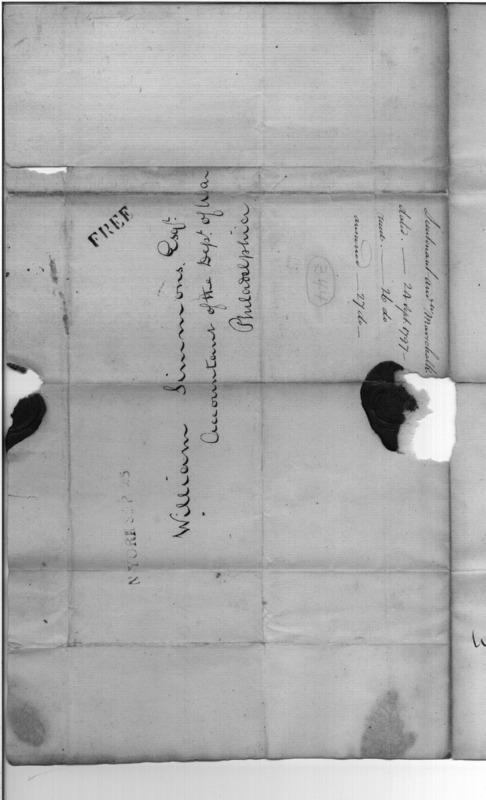 FREE
William Simmons. Esqr.
Accountant of the Dept. of War
Philadelphia
N YORK SEP 25
Lieutenant Andw Marschalk
dated. — 24 Sept. 1797 —
recd. — 26 do
answered — 27 do —